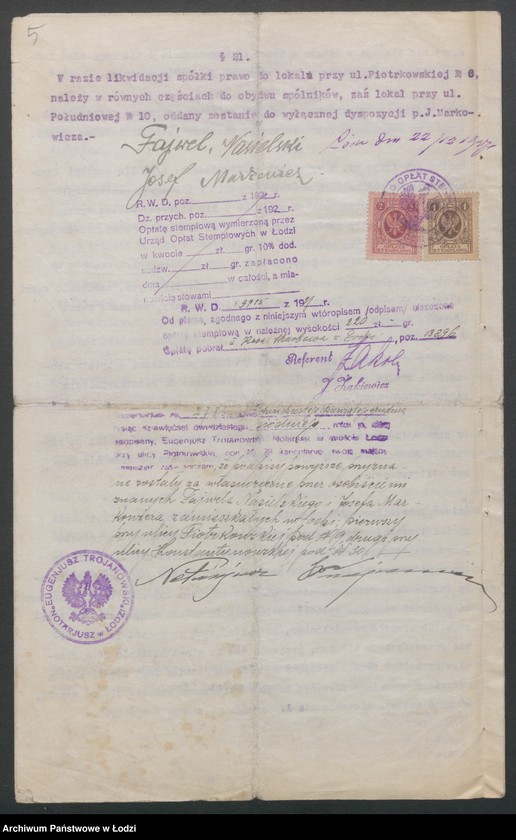 5
§ 21.
W razie likwidacji spółki prawo do lokalu przy ul.Piotrkowskiej № 6,
należy w równych częściach do obydwu spólników, zaś lokal przy ul.
Południowej № 10, oddany zostanie do wyłącznej dyspozycji p.J.Marko-
wicza.-
Fajwel Nasielski
dnia 22
Josef Markowicz
R. W. D. poz. z 192 r.
Dz. przych. poz. z 192 r.
Opłatę stemplową wymierzoną przez
Urząd Opłat Stemplowych w Łodzi
w kwocie zł gr. 10% dod.
nadzw. zł gr. zapłacono
dnia w całości, a mia-
nowicie słowami
OPŁAT STE
2
1
OPŁATA
OPŁATA
R. W. D. z 19 r.
Od pisma, zgodnego z niniejszym wtóropisem /odpisem/ uiszczono
opłatę stemplową w należnej wysokości 220 zł - gr.
Opłatę pobrał Kasa Skarbowa w Łodzi, poz. 13296
Referent
J. Żakiewicz
dwudziestego drugiego grudnia
tysiąc dziewięćset dwudziestego siódmego roku ja niżej
podpisany, Eugenjusz Trojanowski, Notarjusz w mieście Łodzi
przy ulicy Piotrkowskiej, kancelarję swoją mający
że podpisy powyższe uczynio-
ne zostały za własnoręczne przez osobiście mi
znanych Fajwela Nasielskiego i Josefa Mar-
kowicza, zamieszkałych w Łodzi: pierwszy
przy ulicy Piotrkowskiej pod № 9, drugi przy
ulicy Konstantynowskiej pod № 50
Notarjusz
EUGENJUSZ TROJANOWSKI
NOTARJUSZ w ŁODZI
Archiwum Państwowe w Łodzi